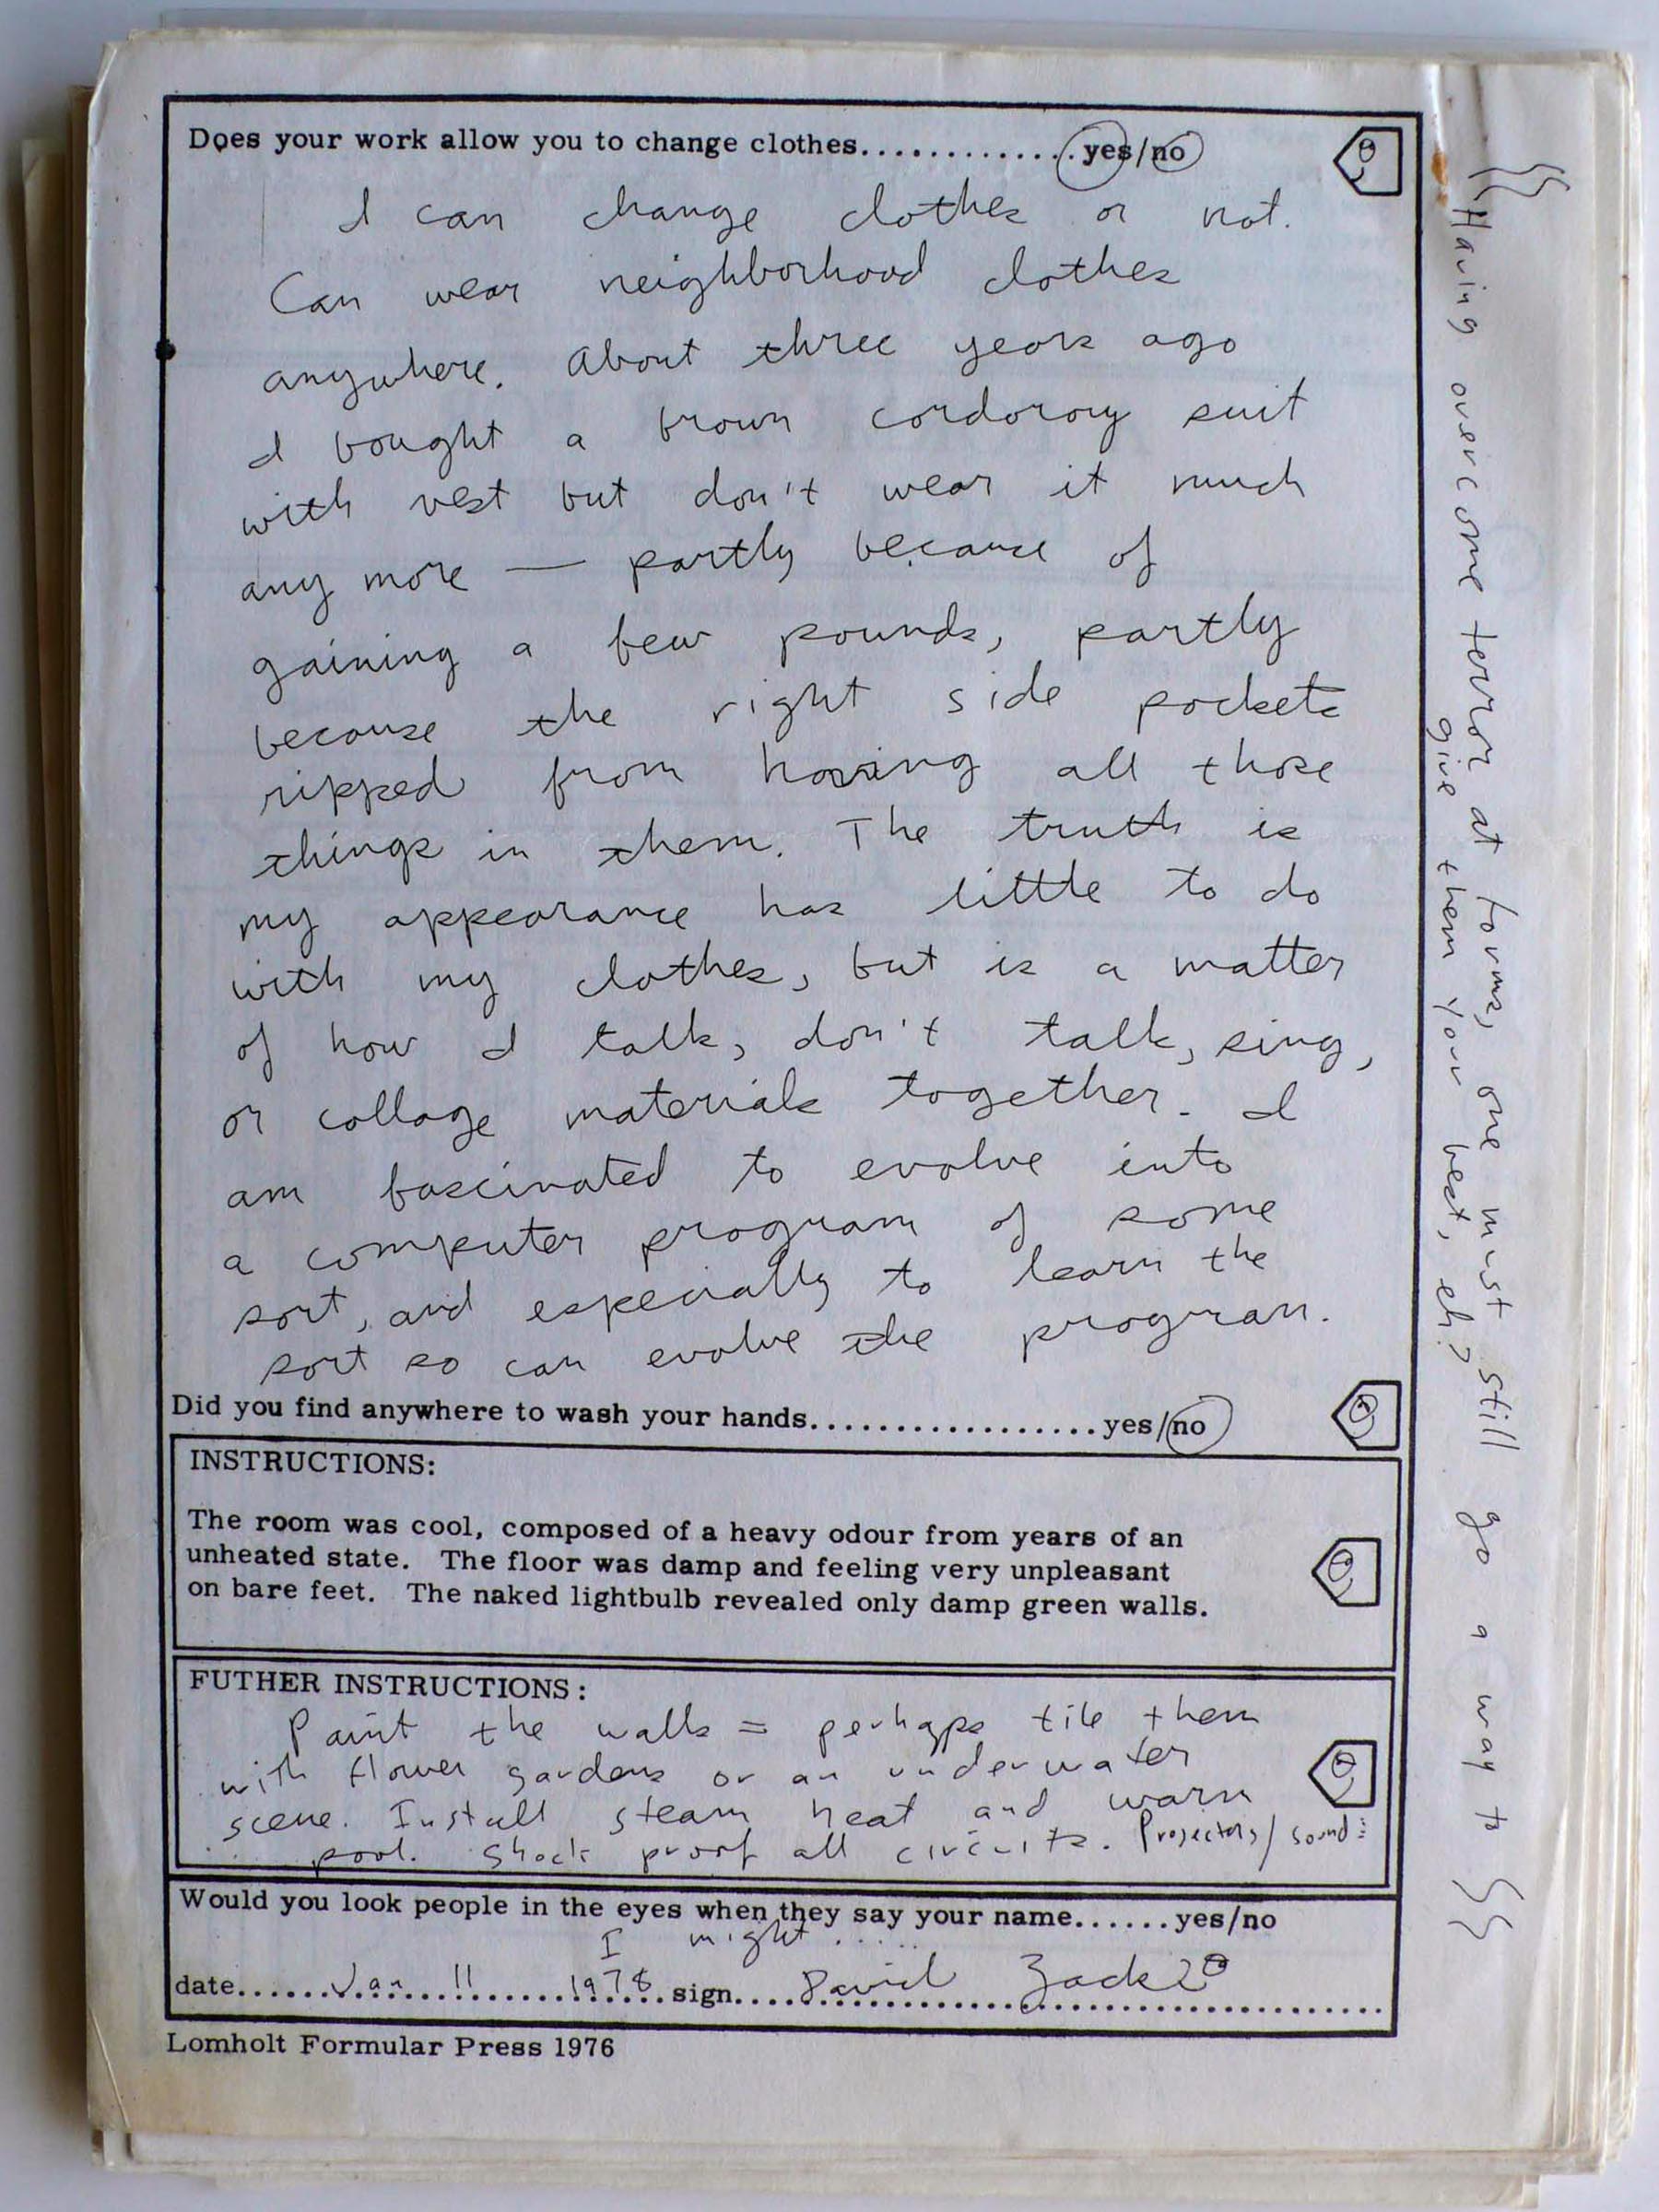 Does your work allow you to change clothes..............yes/no
I can change clothes or not.
Can wear neighborhood clothes
anywhere. About three years ago
I bought a brown cordoroy suit
with vest but don't wear it much
any more — partly because of
gaining a few pounds, partly
because the right side pockets
ripped from having all those
things in them. The truth is
my appearance has little to do
with my clothes, but is a matter
of how I talk, don't talk, sing,
or collage materials together. I
am fascinated to evolve into
a computer program of some
sort, and especially to learn the
sort so can evolve the program.
Did you find anywhere to wash your hands.................yes/no
INSTRUCTIONS:
The room was cool, composed of a heavy odour from years of an
unheated state. The floor was damp and feeling very unpleasant
on bare feet. The naked lightbulb revealed only damp green walls.
FUTHER INSTRUCTIONS:
Paint the walls = perhaps tile them
with flower gardens or an underwater
scene. Install steam heat and warm
pool. Shock proof all circuits. Projectors/sound
Would you look people in the eyes when they say your name......yes/no
I might.....
date......Jan 11 1978 sign....David Zack
Lomholt Formular Press 1976
Having overcome terror at forms, one must still go a way to
give them your best, eh?